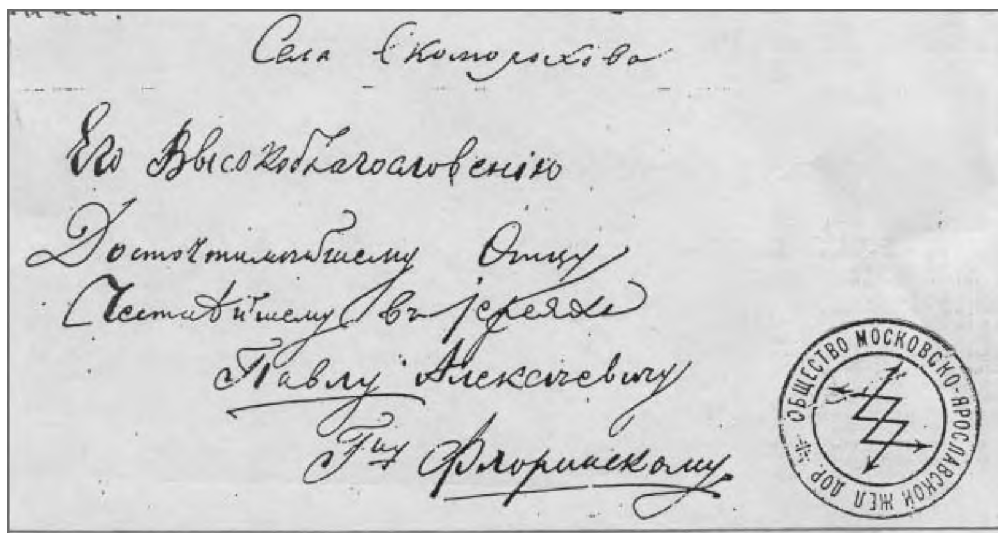 Села Скоморохова
Его Высокоблагословенію
Досточтимѣйшему Отцу
Честнѣйшему въ Іереяхъ
Павлу Алексѣевичу
Г-ну Флоринскому
ОБЩЕСТВО МОСКОВСКО-ЯРОСЛАВСКОЙ ЖЕЛ ДОР